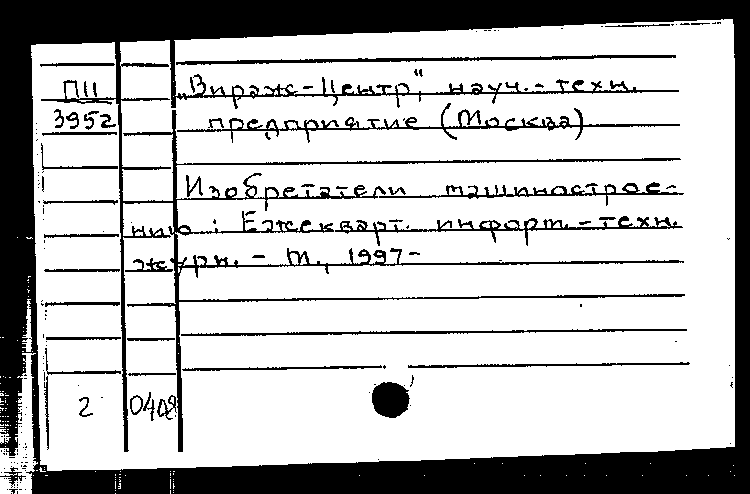 ПII „Вираж-Центр", науч.-техн.
3952 предприятие (Москва)
Изобретатели машинострое-
нию : Ежекварт. информ.-техн.
журн. - М., 1997-
2